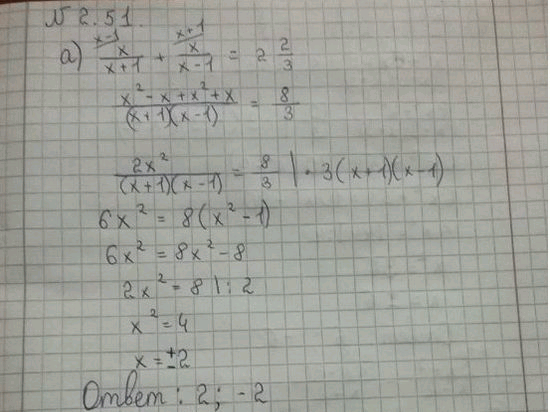 № 2.51.
а) x-1 x/(x+1) + x+1 x/(x-1) = 2 2/3
(x² - x + x² + x)/((x+1)(x-1)) = 8/3
2x²/((x+1)(x-1)) = 8/3 | · 3(x+1)(x-1)
6x² = 8(x² - 1)
6x² = 8x² - 8
2x² = 8 | : 2
x² = 4
x = ±2
Ответ : 2 ; -2